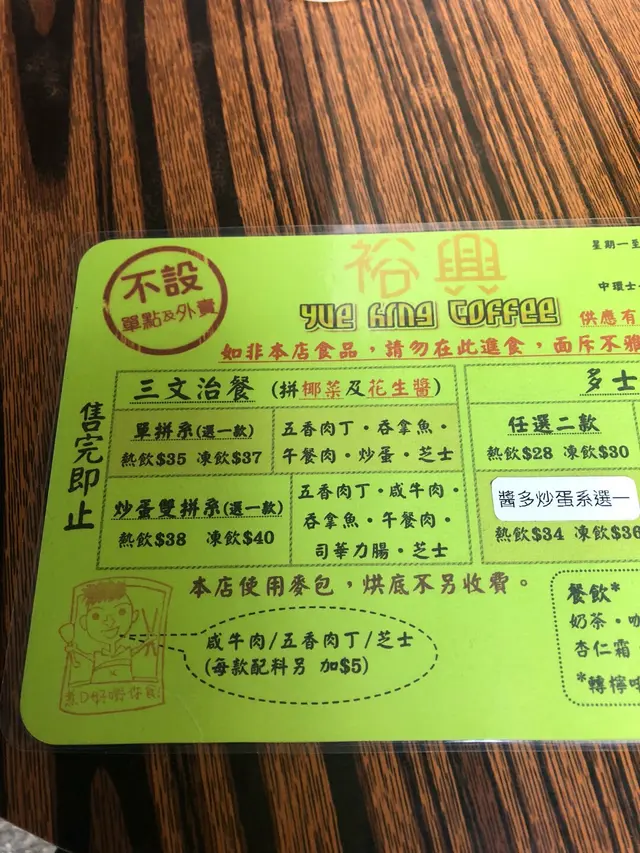 不設
單點及外賣
裕興
YUE HING COFFEE
星期一至
中環士
供應有
如非本店食品，請勿在此進食，面斥不雅
售完即止
三文治餐 (拼椰菜及花生醬)
單拼系(選一款)
熱飲$35 凍飲$37
五香肉丁・吞拿魚・
午餐肉・炒蛋・芝士
炒蛋雙拼系(選一款)
熱飲$38 凍飲$40
五香肉丁・咸牛肉・
吞拿魚・午餐肉・
司華力腸・芝士
多士
任選二款
熱飲$28 凍飲$30
醬多炒蛋系選一
熱飲$34 凍飲$36
本店使用麥包，烘底不另收費。
咸牛肉/五香肉丁/芝士
(每款配料另 加$5)
煮D好嘢俾你食!
餐飲*
奶茶・咖
杏仁霜
*轉檸